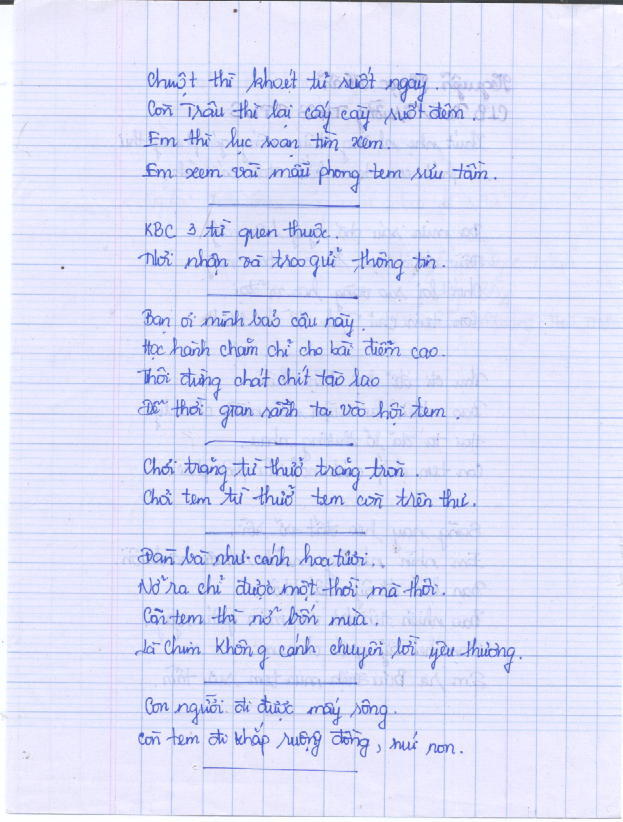 Chuột thì khoét tủ suốt ngày.
Còn Trâu thì lại cấy cày suốt đêm.
Em thì lục soạn tìm xem.
Em xem vài mẫu phong tem sưu tầm.
KBC 3 từ quen thuộc.
Nơi nhận và trao gửi thông tin.
Bạn ơi mình bảo câu này.
Học hành chăm chỉ cho bài điểm cao.
Thôi đừng chát chít tào lao
Để thời gian rảnh ta vào hội tem.
Chơi trăng từ thuở trăng tròn.
Chơi tem từ thuở tem còn trên thư.
Đàn bà như cánh hoa tươi.
Nở ra chỉ được một thời mà thôi.
Còn tem thì nở bốn mùa.
Là chim không cánh chuyển lời yêu thương.
Con người đi được mấy sông.
Còn tem đi khắp ruộng đồng, núi non.